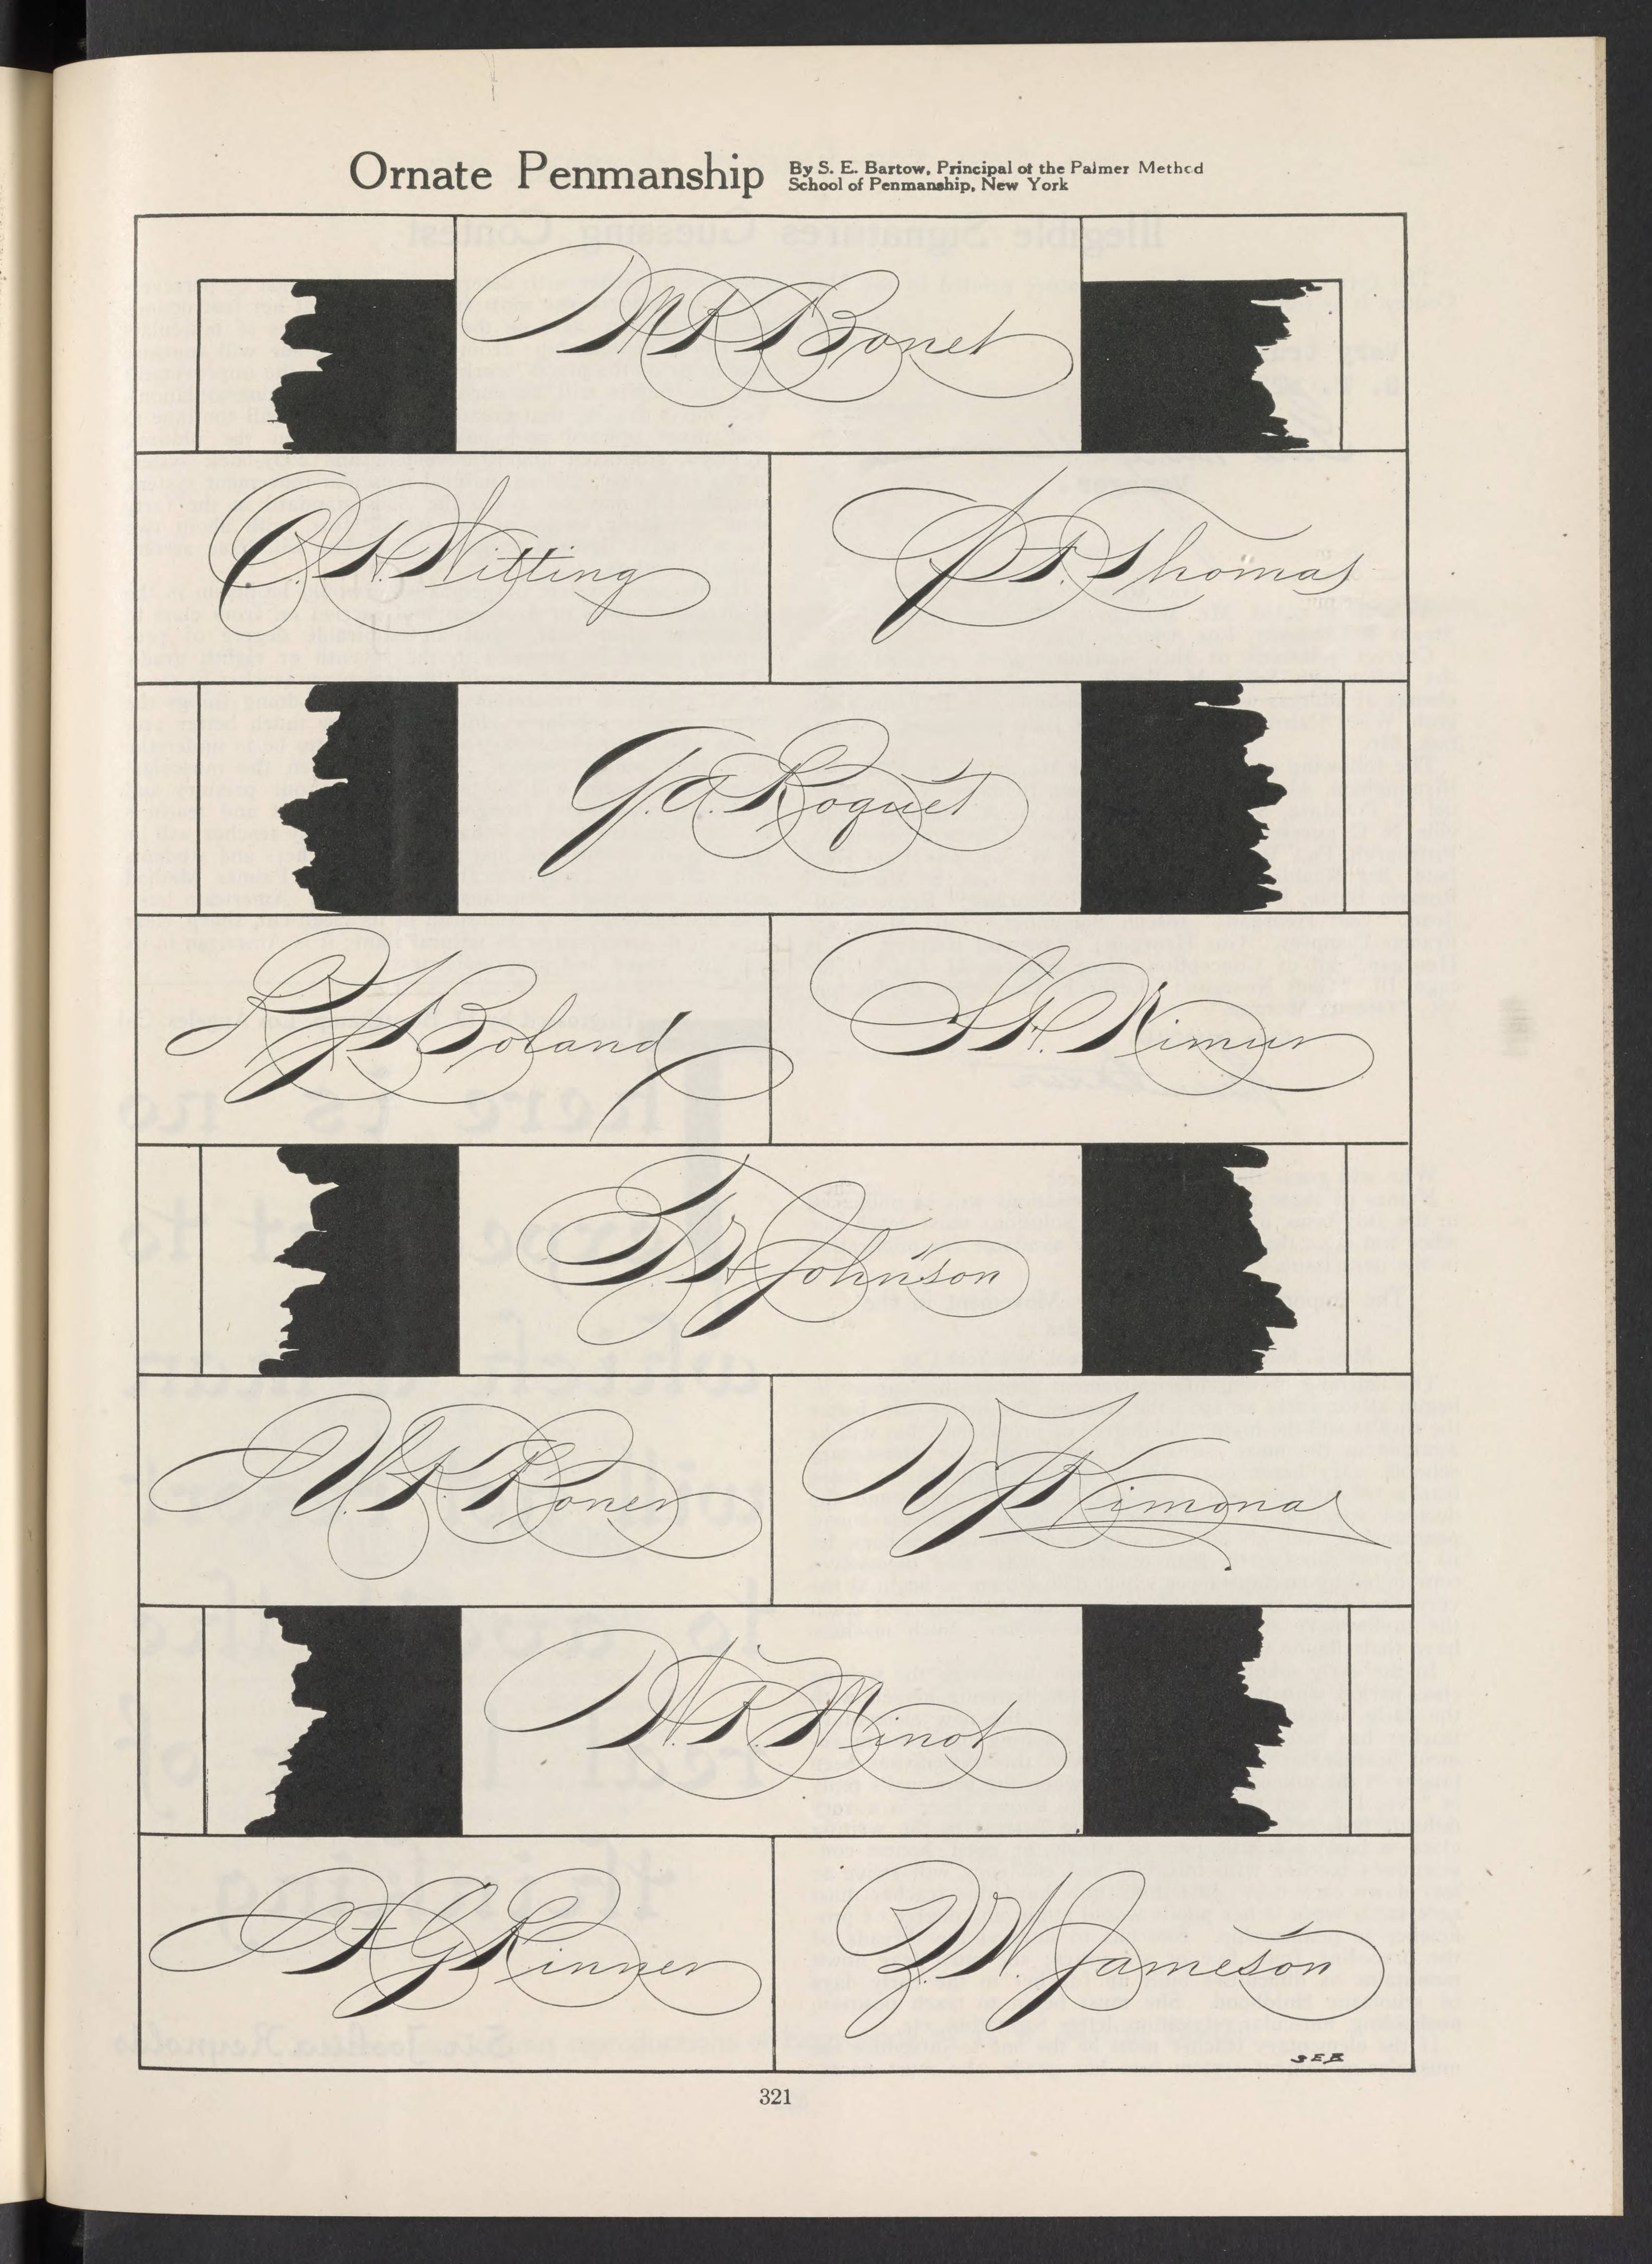 Ornate Penmanship
By S. E. Bartow, Principal of the Palmer Method
School of Penmanship, New York
M. R. Bonet
C. H. Witting
P. T. Thomas
G. A. Roquet
P. H. Boland
S. H. Kimur
Johnson
A. F. Roner
V. J. Kimona
W. R. Minot
A. G. Kinner
Z. W. Jameson
SEB
321